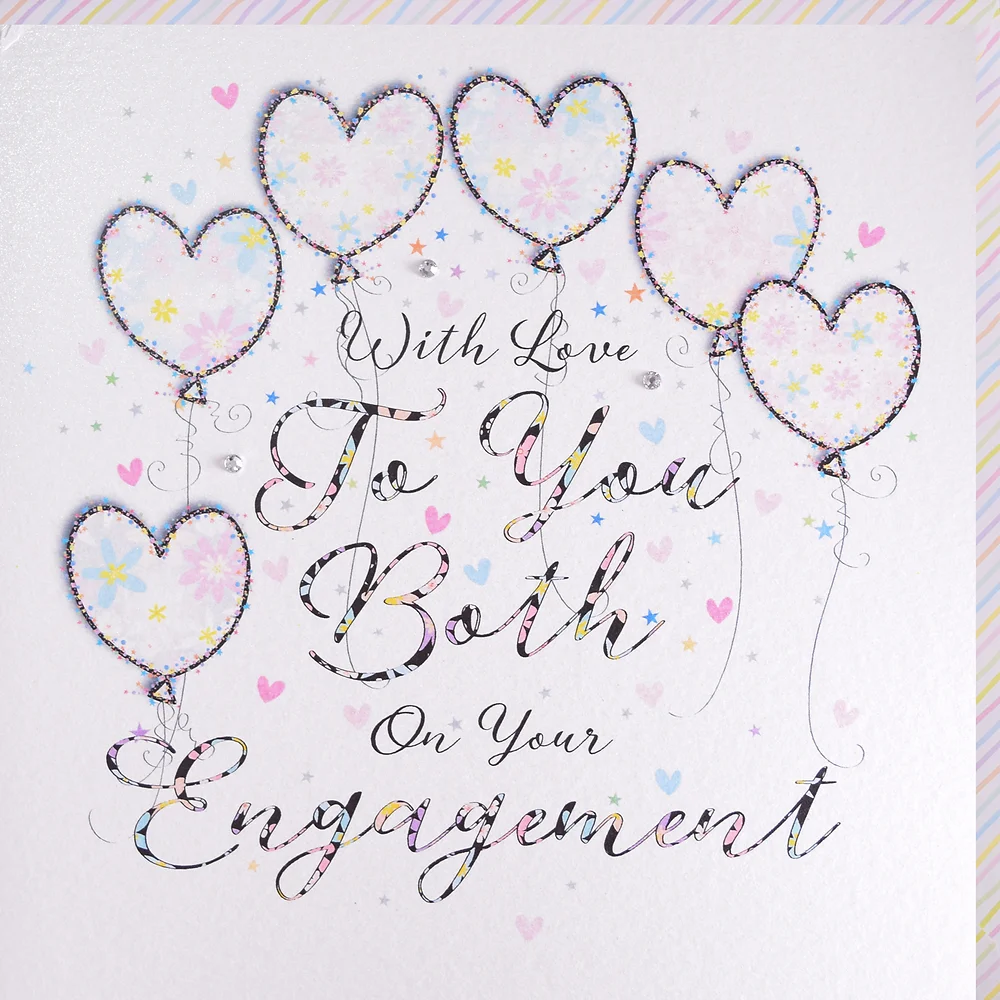 With Love
To You
Both
On Your
Engagement